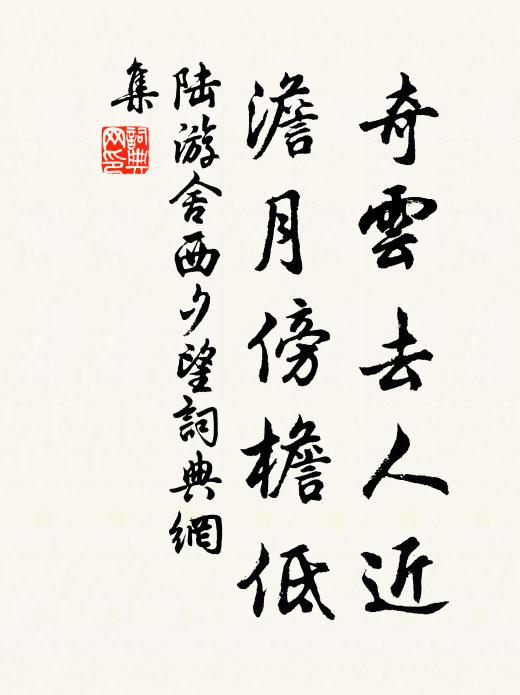 奇雲去人近
澹月傍檐低
陆游舍西夕望詞典網
集
詞典网印